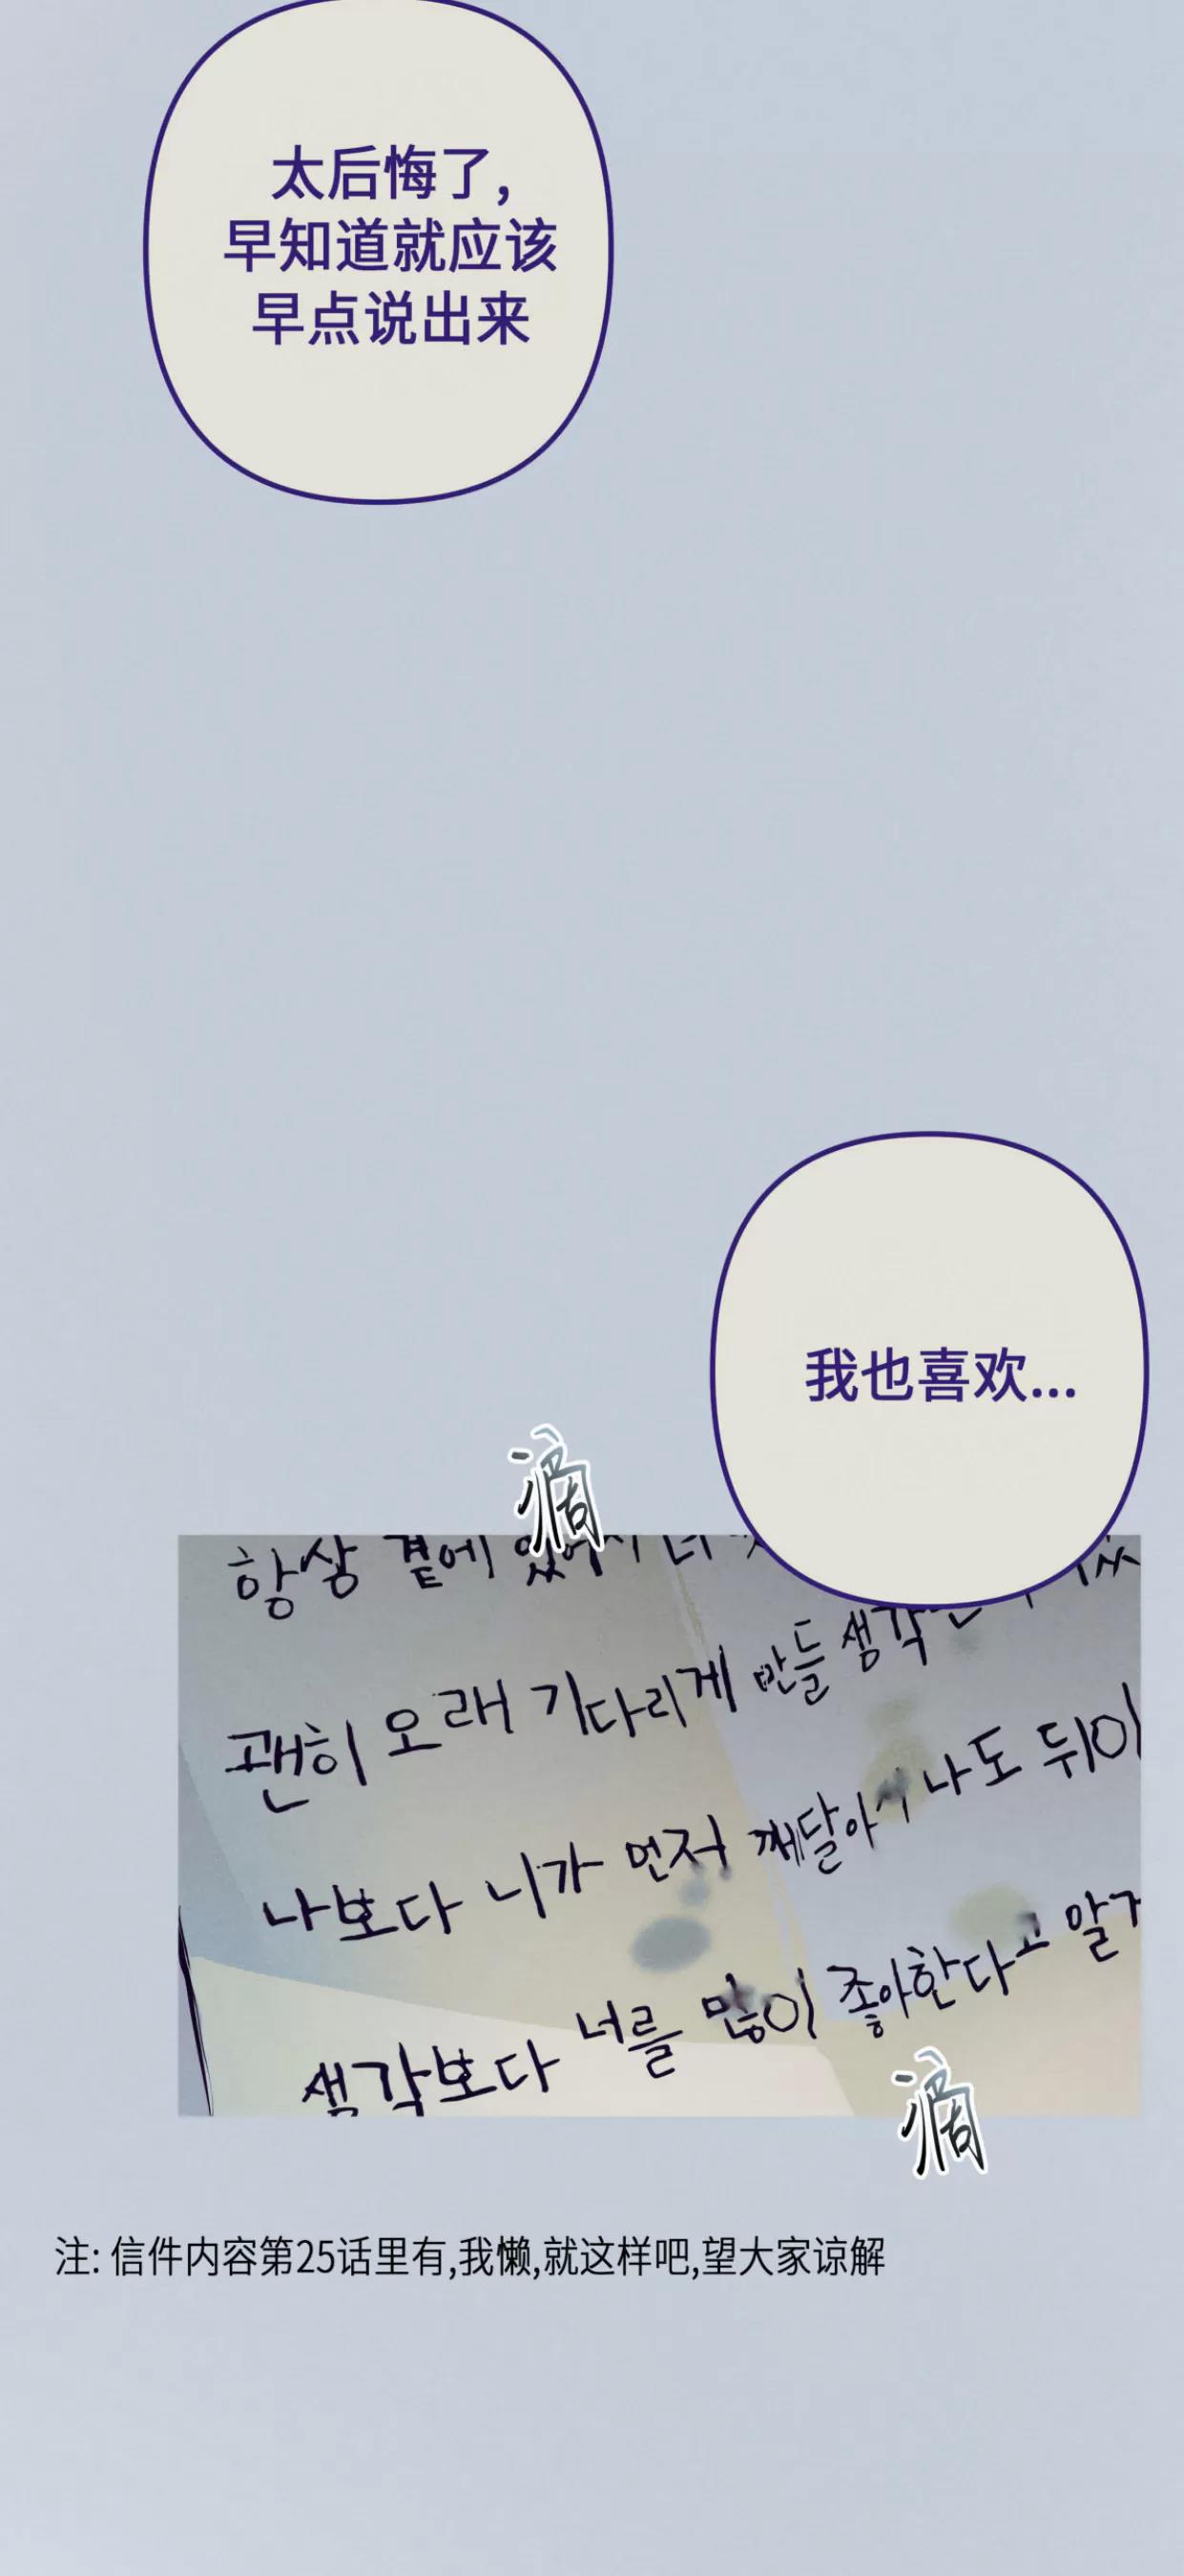 太后悔了,
早知道就应该
早点说出来
我也喜欢...
滴
항상 곁에
괜히 오래 기다리게 만들 생각
나보다 니가 먼저 깨달아서 나도 뒤이
생각보다 너를 많이 좋아한다고 알
滴
注: 信件内容第25话里有,我懒,就这样吧,望大家谅解